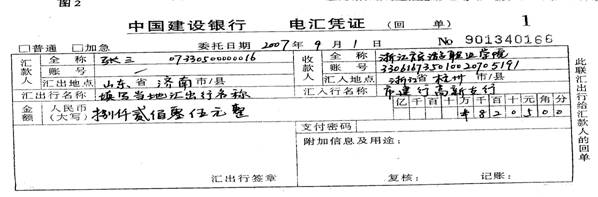 图2
中国建设银行 电汇凭证 (回单) 1
□普通 □加急 委托日期 2007年9月1日 No 901340166
汇款人 全称 张三 07330500000016 收款人 全称 浙江旅游职业学院
账号 账号 33061673501002705191
汇出地点 山东省济南市/县 汇入地点 浙江省杭州市/县
汇出行名称 填写当地汇出行名称 汇入行名称 市建行高新支行
金额 人民币(大写) 捌仟贰佰零伍元整 亿千百十万千百十元角分
¥820500
支付密码
附加信息及用途:
汇出行签章 复核: 记账:
此联汇出行给汇款人的回单